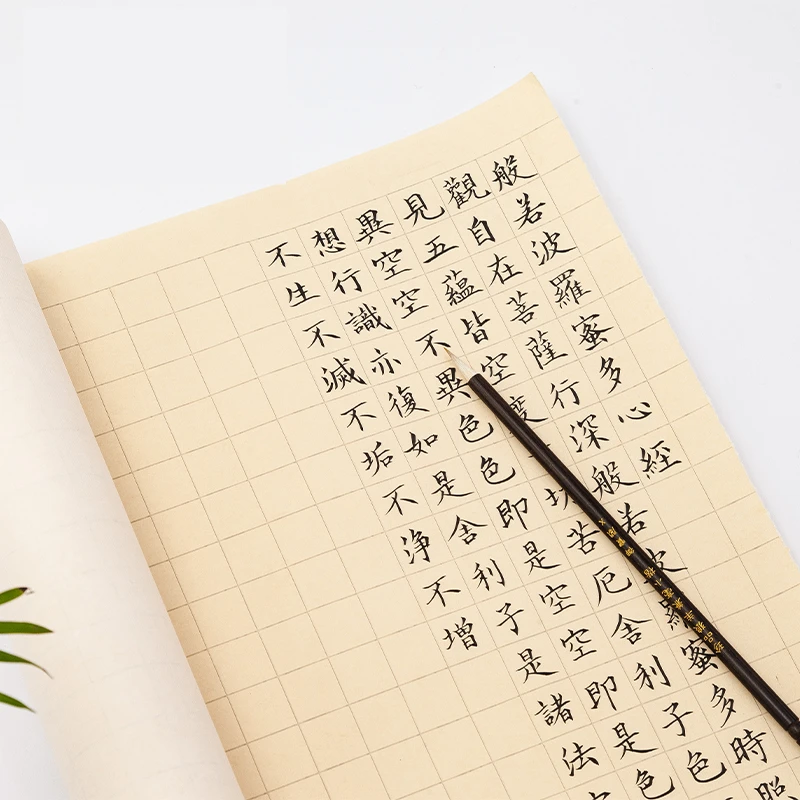 般若波羅蜜多心經
觀自在菩薩行深般若波羅蜜多時照
見五蘊皆空度切苦厄舍利子色
異空空不異色色即是空空即是色
想行識亦復如是舍利子是諸法
不生不滅不垢不淨不增